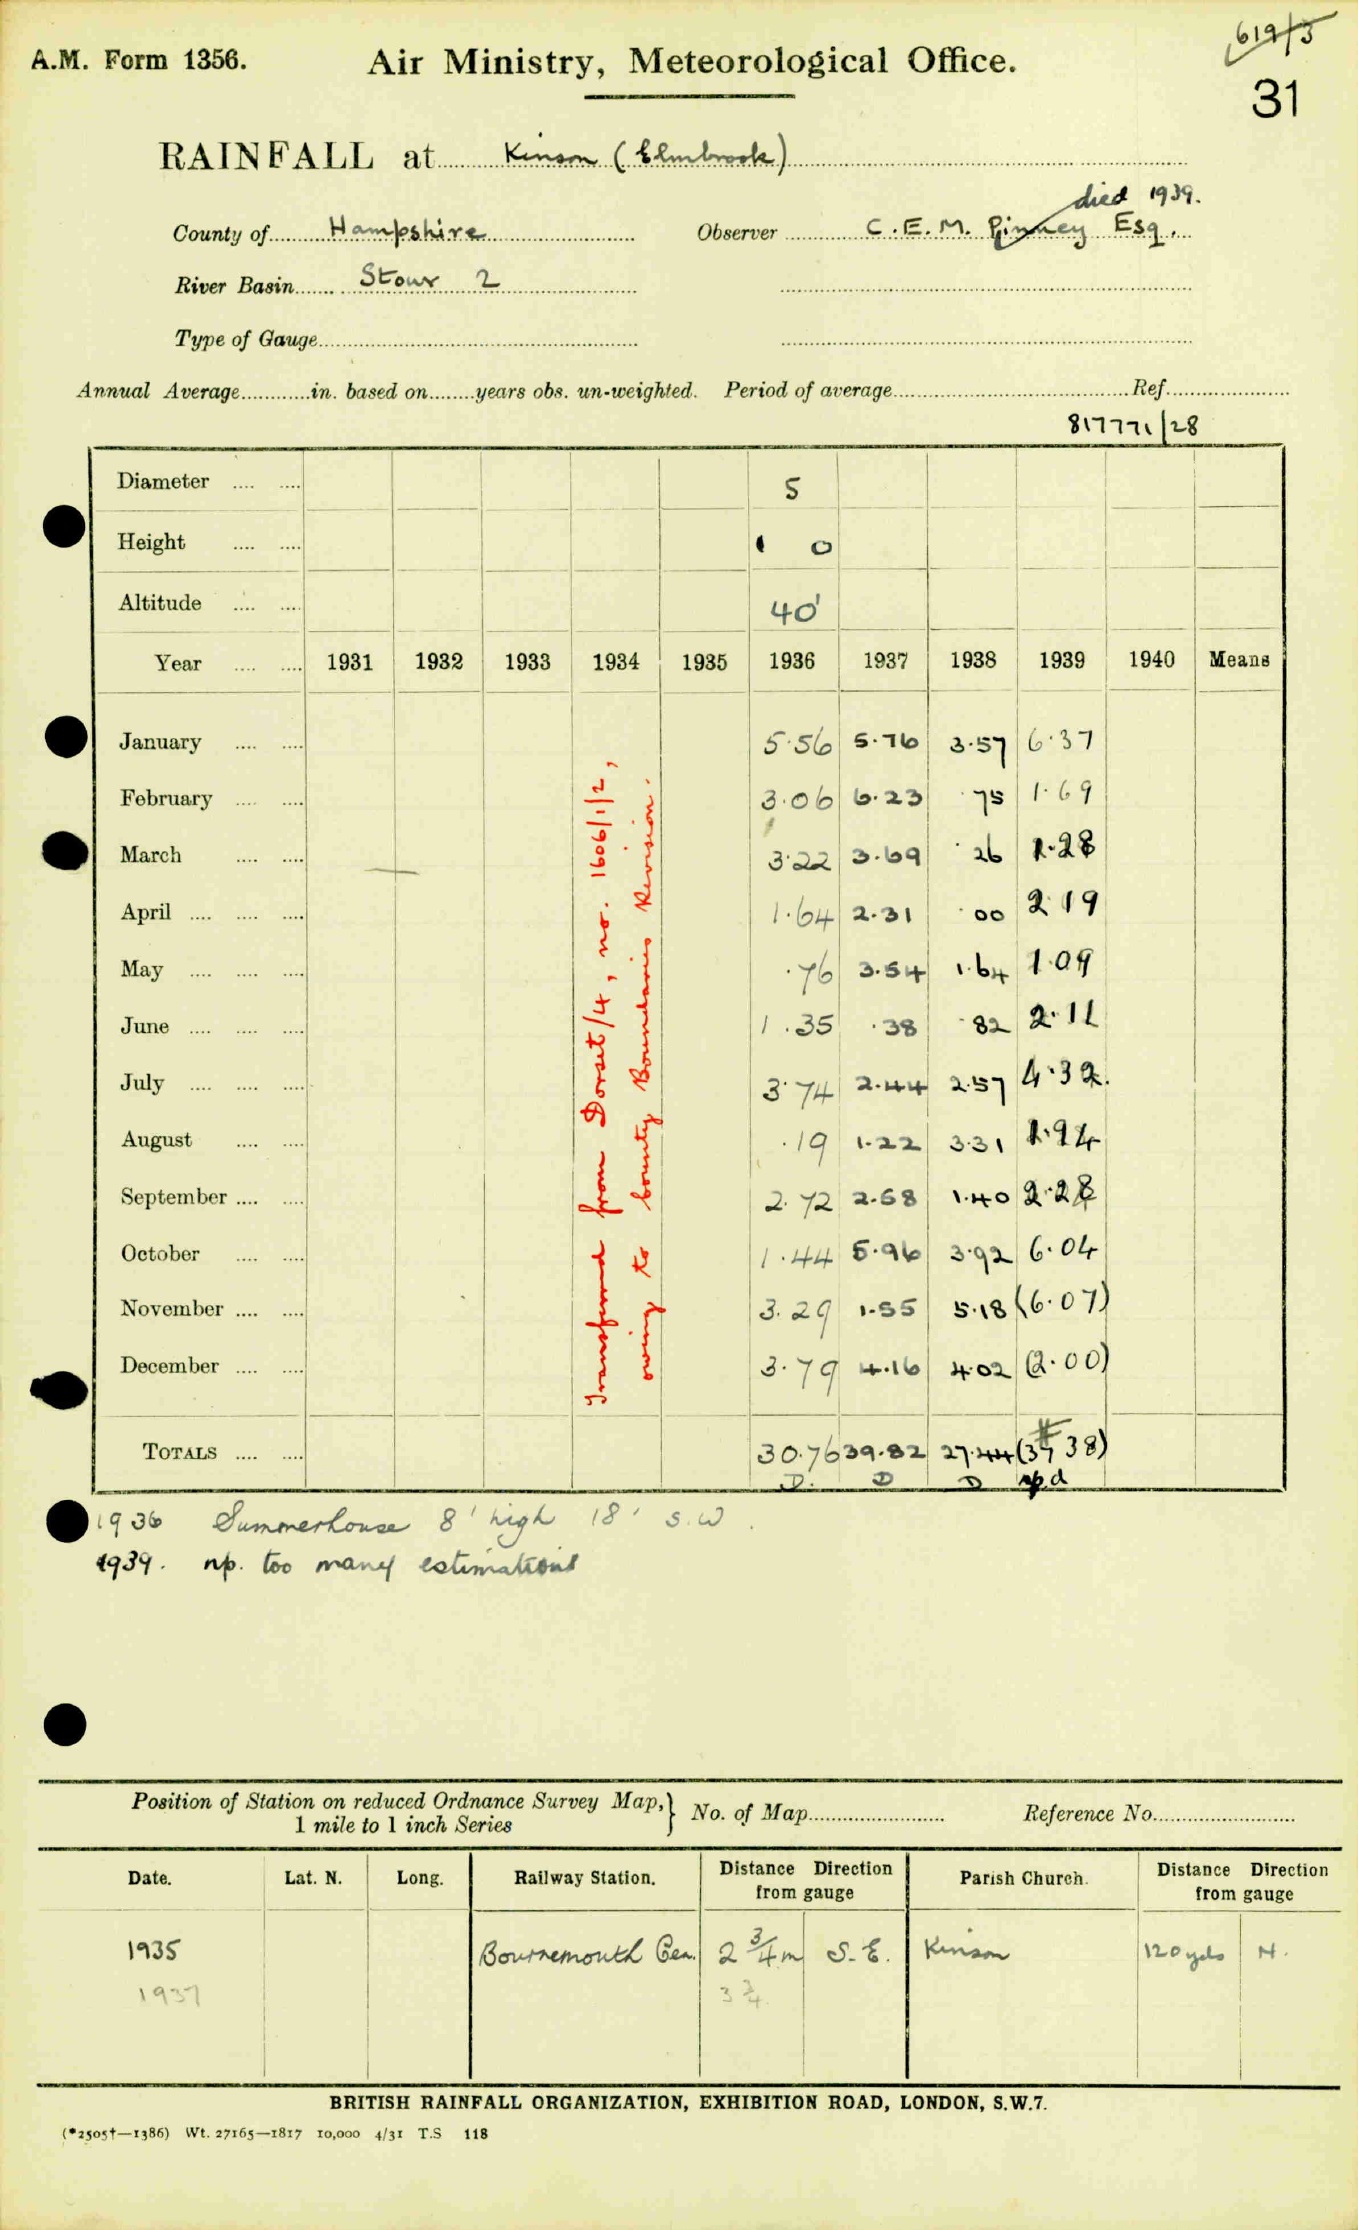 619/3
A.M. Form 1356. Air Ministry, Meteorological Office.
31
RAINFALL at Kinson (Elmbrook)
died 1939.
County of Hampshire Observer C.E.M. Pinney Esq.
River Basin Stour 2
Type of Gauge
Annual Average in. based on years obs. un-weighted. Period of average Ref.
817771/28
Diameter 5
Height 1 0
Altitude 40'
Year 1931 1932 1933 1934 1935 1936 1937 1938 1939 1940 Means
January 5.56 5.76 3.57 6.37
February 3.06 6.23 .75 1.69
March 3.22 3.69 .26 1.28
April 1.64 2.31 .00 2.19
May .76 3.54 1.64 1.09
June 1.35 .38 .82 2.11
July 3.74 2.44 2.57 4.32
August .19 1.22 3.31 1.94
September 2.72 2.58 1.40 2.28
October 1.44 5.96 3.92 6.04
November 3.29 1.55 5.18 (6.07)
December 3.79 4.16 4.02 (2.00)
TOTALS 30.76 39.82 27.44 (37 38)
D. D D np.d
Transferred from Dorset/4, no. 1606/1/2,
owing to County Boundaries Revision.
1936 Summerhouse 8' high 18' S.W.
1939. np. too many estimations
Position of Station on reduced Ordnance Survey Map, } No. of Map Reference No.
1 mile to 1 inch Series
Date. Lat. N. Long. Railway Station. Distance Direction from gauge Parish Church. Distance Direction from gauge
1935 Bournemouth Cen. 2 3/4 m S.E. Kinson 120 yds N.
1937 3 3/4
BRITISH RAINFALL ORGANIZATION, EXHIBITION ROAD, LONDON, S.W.7.
(*2505†—1386) Wt. 27165—1817 10,000 4/31 T.S 118